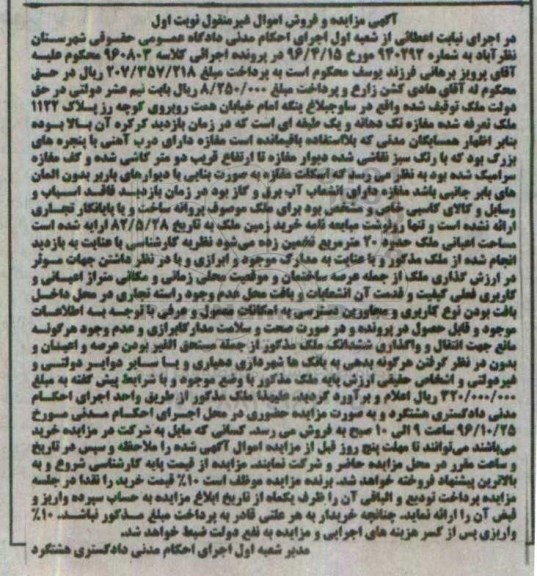 آگهی مزایده و فروش اموال غیرمنقول نوبت اول
در اجرای نیابت اعطائی از شعبه اول اجرای احکام مدنی دادگاه عمومی حقوقی شهرستان
نظرآباد به شماره ۹۴۰۲۹۲ مورخ ۹۶/۴/۱۵ در پرونده اجرائی کلاسه ۹۶۰۸۰۳ محکوم علیه
آقای پرویز برهانی فرزند یوسف محکوم است به پرداخت مبلغ ۲۰۷/۳۵۷/۲۱۸ ریال در حق
محکوم له آقای هادی کشن زارع و پرداخت مبلغ ۸/۲۵۰/۰۰۰ ریال بابت نیم عشر دولتی در حق
دولت ملک توقیف شده واقع در ساوجبلاغ بنگه امام خیابان همت روبروی کوچه رز پلاک ۱۱۲۲
ملک تعرفه شده مغازه تک دهانه و یک طبقه ای است که در زمان بازدید کرکره آن بالا بوده
بنابر اظهار همسایگان مدتی که بلااستفاده باقیمانده است مغازه دارای درب آهنی با پنجره های
بزرگ بود که با رنگ سبز نقاشی شده دیوار مغازه تا ارتفاع قریب دو متر کاشی شده و کف مغازه
سرامیک شده بود به نظر می رسد که اسکلت مغازه به صورت بنایی با دیوارهای باربر بدون المان
های باربر جانبی باشد مغازه دارای انشعاب آب برق و گاز بود در زمان بازدید فاقد اسباب و
وسایل و کالای کاسبی خاص و مشخص بود برای ملک موصوف پروانه ساخت و یا پایانکار تجاری
ارائه نشده است و تنها رونوشت مبایعه نامه خرید زمین ملک به تاریخ ۸۲/۵/۲۸ ارایه شده است
مساحت اعیانی ملک حدود ۲۰ مترمربع تخمین زده می‌شود نظریه کارشناسی با عنایت به بازدید
انجام شده از ملک مذکور و با عنایت به مدارک موجود و ابرازی و با در نظر داشتن جهات موثر
در ارزش گذاری ملک از جمله عرصه ساختمان و موقعیت محلی زمانی و مکانی متراژ اعیانی و
کاربری فعلی کیفیت و قدمت آن انشعابات و بافت محل عدم وجود راسته تجاری در محل داخل
بافت بودن نوع کاربری و مجاورین دسترسی به امکانات معمول و عرفی با توجه به اطلاعات
موجود و قابل حصول در پرونده و در صورت صحت و سلامت مدارک ابرازی و عدم وجود هرگونه
مانع جهت انتقال و واگذاری ششدانگ ملک مذکور از جمله مستحق الغیر بودن عرصه و اعیان و
بدون در نظر گرفتن هرگونه بدهی به بانک ها شهرداری دهیاری و یا سایر دوایر دولتی و
غیردولتی و اشخاص حقیقی ارزش پایه ملک مذکور با وضع موجود و با شرایط پیش گفته به مبلغ
۳۲۰/۰۰۰/۰۰۰ ریال اعلام و برآورد گردید. علیهذا ملک مذکور از طریق واحد اجرای احکام
مدنی دادگستری هشتگرد و به صورت مزایده حضوری در محل اجرای احکام مدنی مورخ
۹۶/۱۰/۲۵ ساعت ۹ الی ۱۰ صبح به فروش می رسد. کسانی که مایل به شرکت در مزایده خرید
میباشند می‌توانند تا مهلت پنج روز قبل از مزایده اموال آگهی شده را ملاحظه و سپس در تاریخ
و ساعت مقرر در محل مزایده حاضر و شرکت نمایند. مزایده از قیمت پایه کارشناسی شروع و به
بالاترین پیشنهاد فروخته خواهد شد. برنده مزایده موظف است ۱۰٪ قیمت خرید را نقدا در جلسه
مزایده پرداخت تودیع و الباقی آن را ظرف یکماه از تاریخ ابلاغ مزایده به حساب سپرده واریز و
قبض آن را ارائه نماید. چنانچه خریدار به هر علتی قادر به پرداخت مبلغ مذکور نباشد. ۱۰٪
واریزی پس از کسر هزینه های اجرایی و مزایده به نفع دولت ضبط خواهد شد.
مدیر شعبه اول اجرای احکام مدنی دادگستری هشتگرد